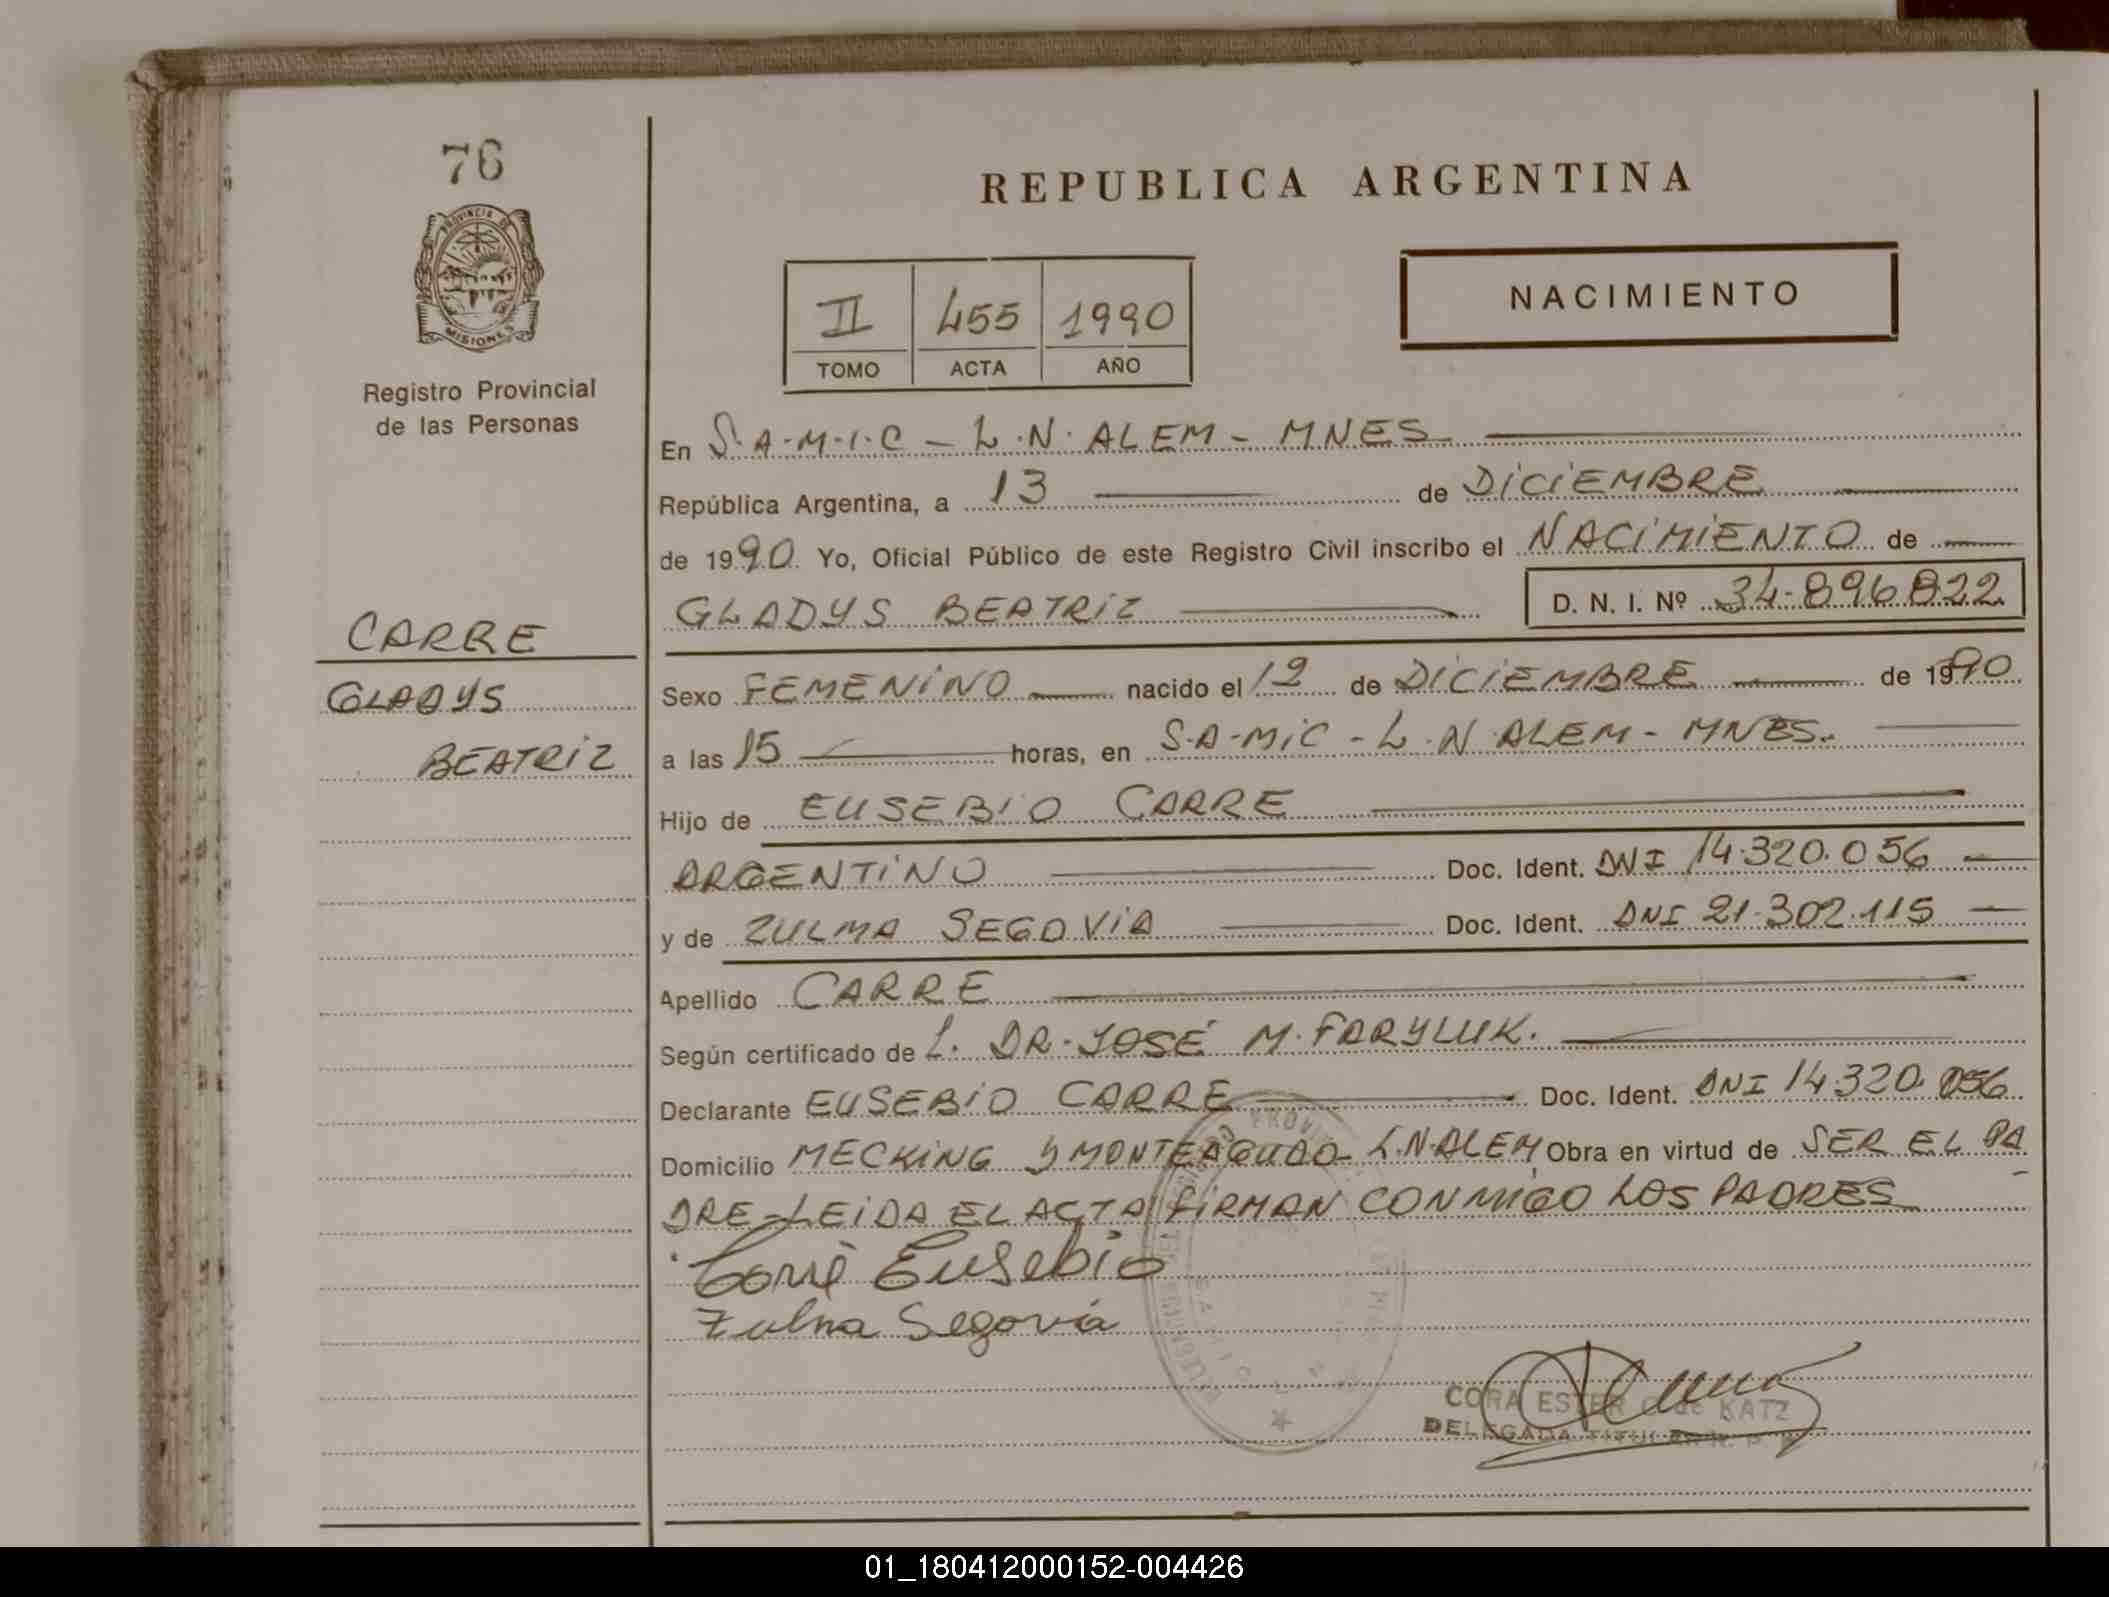 76
PROVINCIA DE
MISIONES
Registro Provincial
de las Personas
CARRE
GLADYS
BEATRIZ
REPUBLICA ARGENTINA
NACIMIENTO
II 455 1990
TOMO ACTA AÑO
En S.A.M.I.C - L.N. ALEM - MNES
República Argentina, a 13 de DICIEMBRE
de 1990. Yo, Oficial Público de este Registro Civil inscribo el NACIMIENTO de
GLADYS BEATRIZ D. N. I. Nº 34.896.822
Sexo FEMENINO nacido el 12 de DICIEMBRE de 1990
a las 15 horas, en S.A.MIC - L.N ALEM - MNES.
Hijo de EUSEBIO CARRE
ARGENTINO Doc. Ident. DNI 14.320.056
y de ZULMA SEGOVIA Doc. Ident. DNI 21.302.115
Apellido CARRE
Según certificado de L. DR. JOSÉ M. FARYLUK.
Declarante EUSEBIO CARRE Doc. Ident. DNI 14.320.056
Domicilio MECKING Y MONTEAGUDO - L.N.ALEM Obra en virtud de SER EL PA
DRE - LEIDA EL ACTA FIRMAN CONMIGO LOS PADRES
Carré Eusebio
Zulma Segovia
CORA ESTER C. de KATZ
DELEGADA TITULAR R. P.
01_180412000152-004426